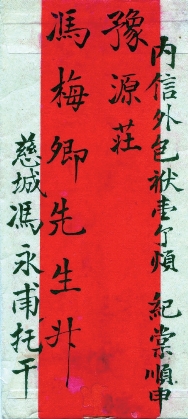 內信外包袱壹个煩 紀棠順申
豫源莊
馮梅卿先生升
慈城馮永甫托干